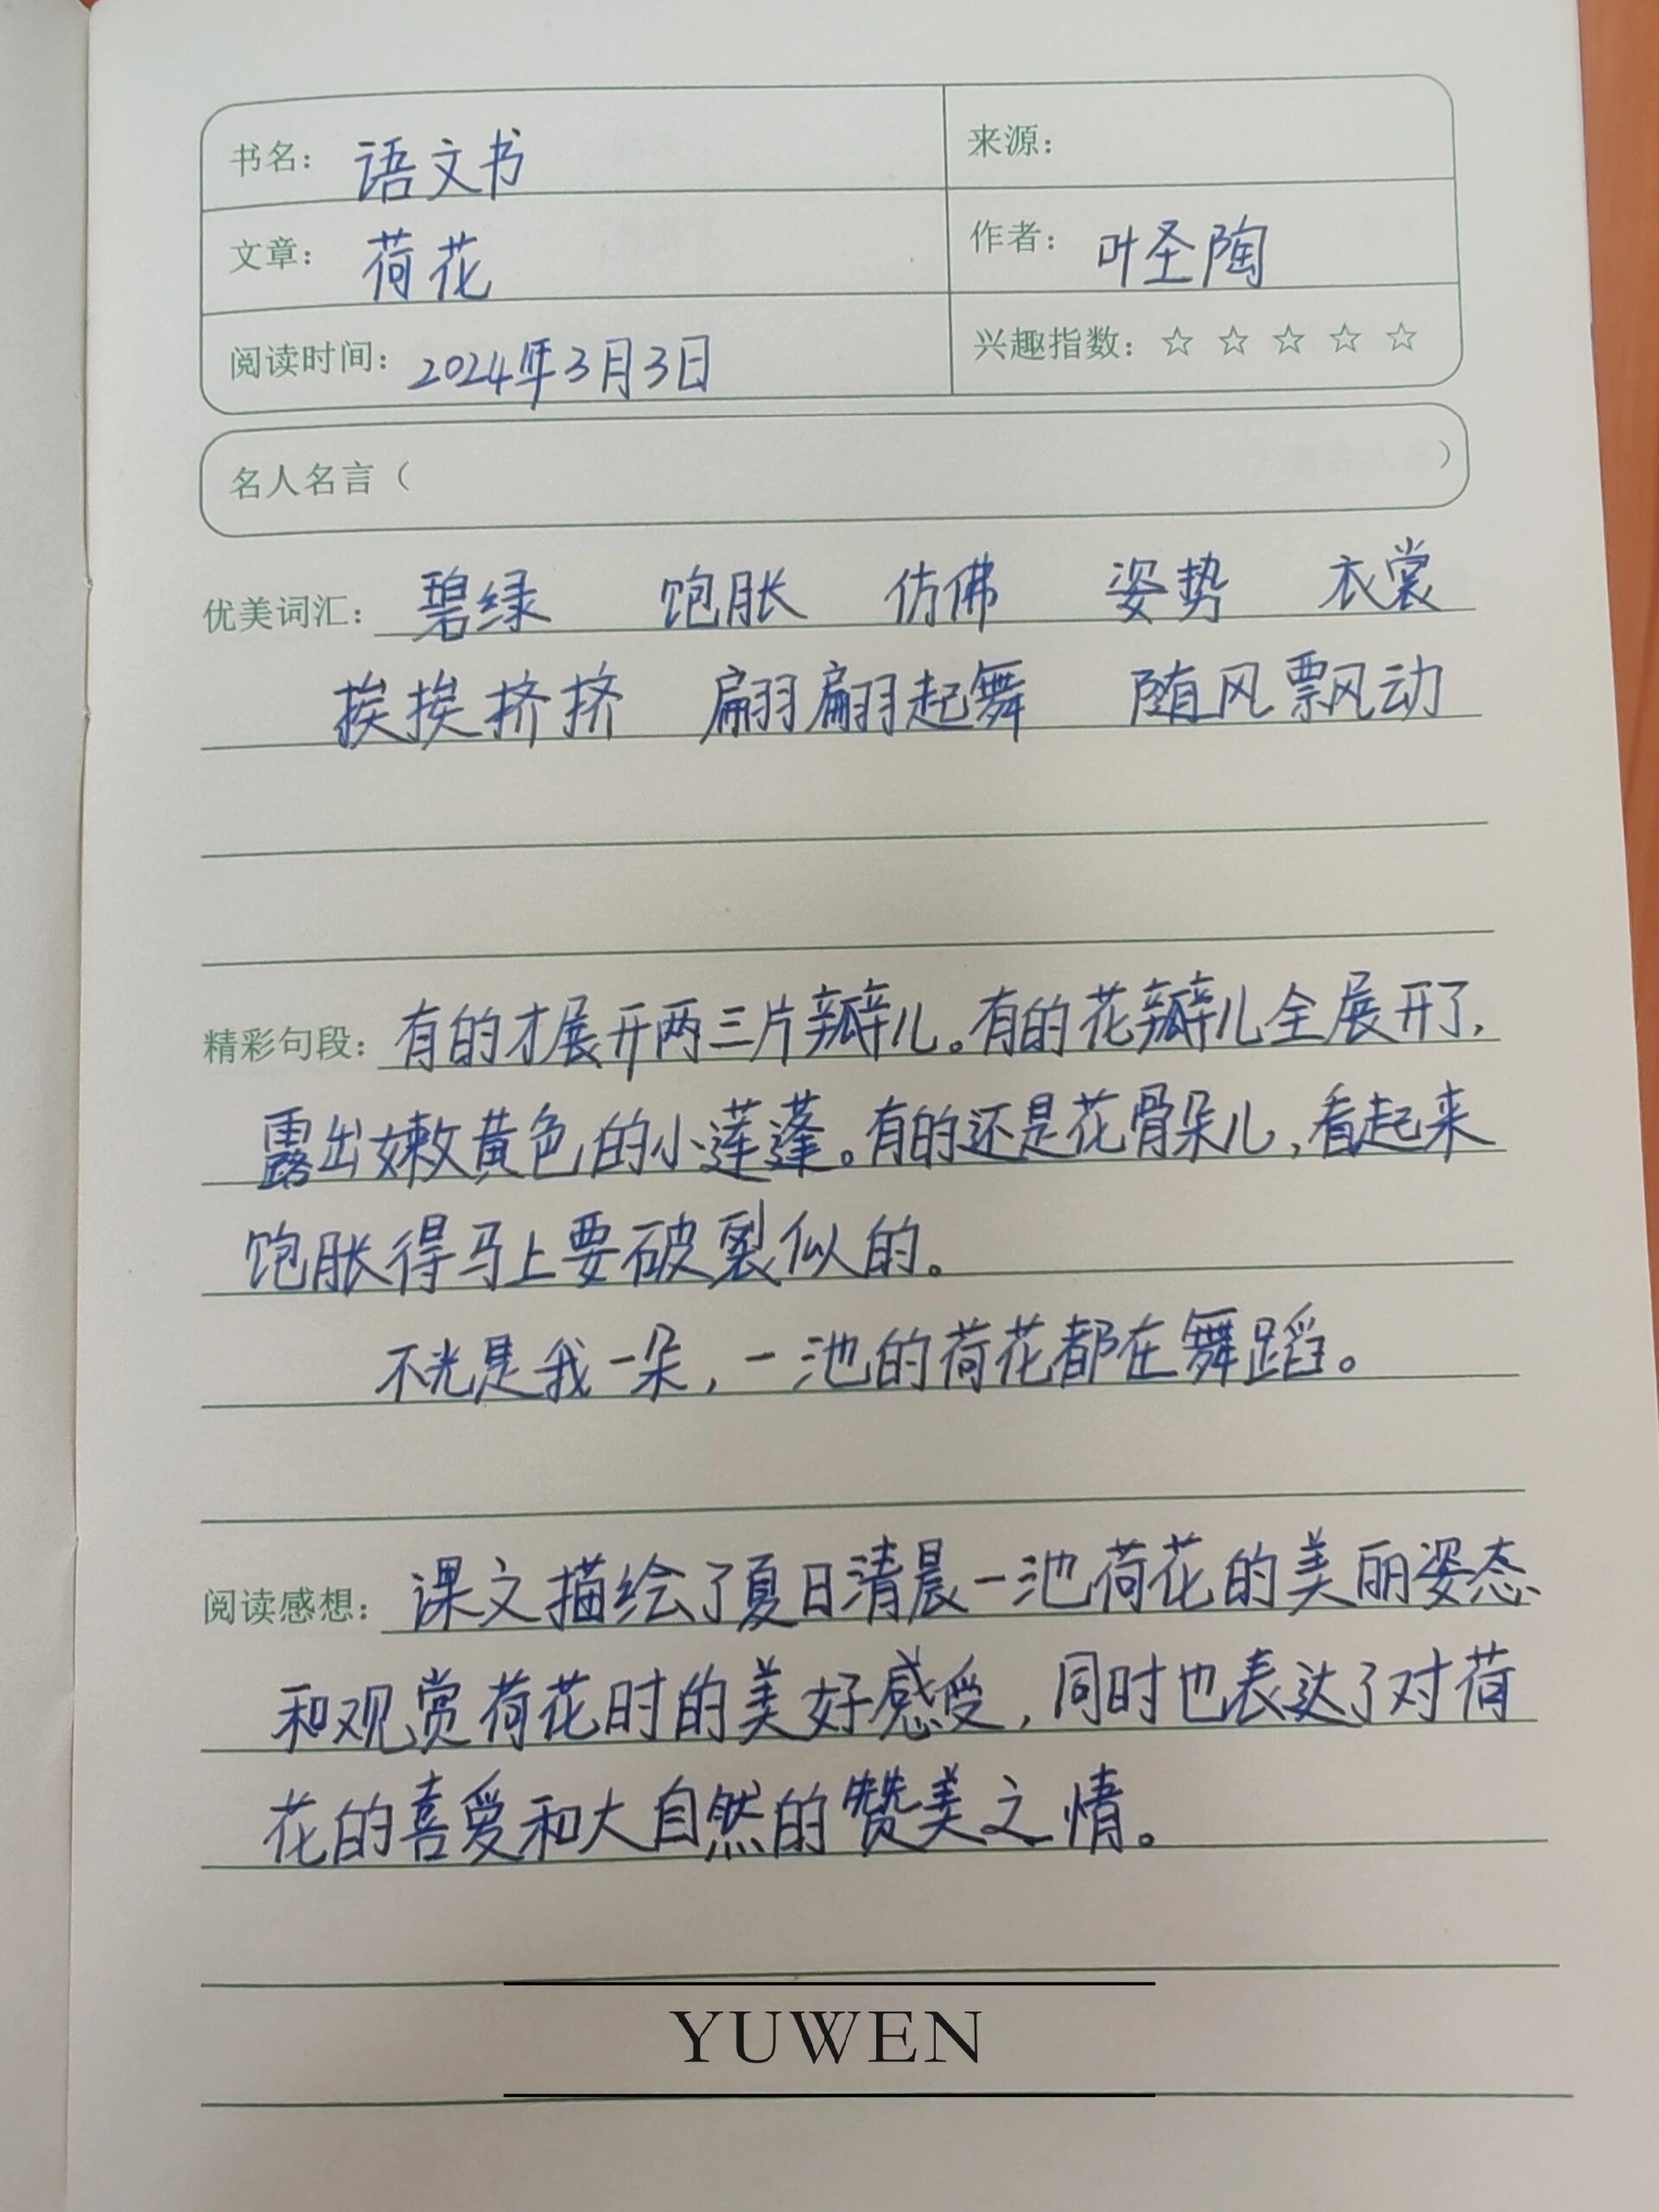 书名： 语文书
来源：
文章： 荷花
作者： 叶圣陶
阅读时间： 2024年3月3日
兴趣指数： ☆ ☆ ☆ ☆ ☆
名人名言（ ）
优美词汇： 碧绿 饱胀 仿佛 姿势 衣裳
挨挨挤挤 翩翩起舞 随风飘动
精彩句段： 有的才展开两三片瓣儿。有的花瓣儿全展开了，
露出嫩黄色的小莲蓬。有的还是花骨朵儿，看起来
饱胀得马上要破裂似的。
不光是我一朵，一池的荷花都在舞蹈。
阅读感想： 课文描绘了夏日清晨一池荷花的美丽姿态
和观赏荷花时的美好感受，同时也表达了对荷
花的喜爱和大自然的赞美之情。
YUWEN